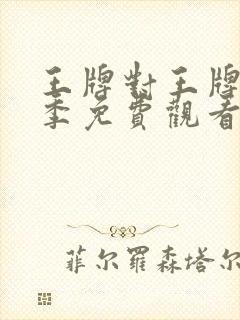 王牌對王牌
季免費觀看
菲尔羅森塔尔